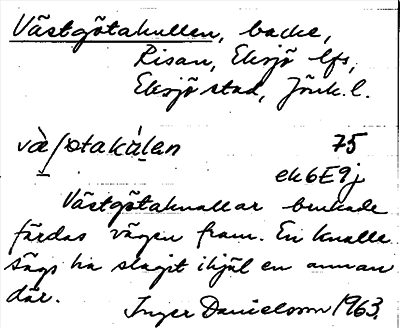 Västgötakullen, backe,
Risan, Eksjö lfs,
Eksjö stad, Jönk. l.
75
ek6E9j
Västgötaknallar brukade
färdas vägen fram. En knalle
sägs ha slagit ihjäl en annan
där.
Inger Danielsson 1963.